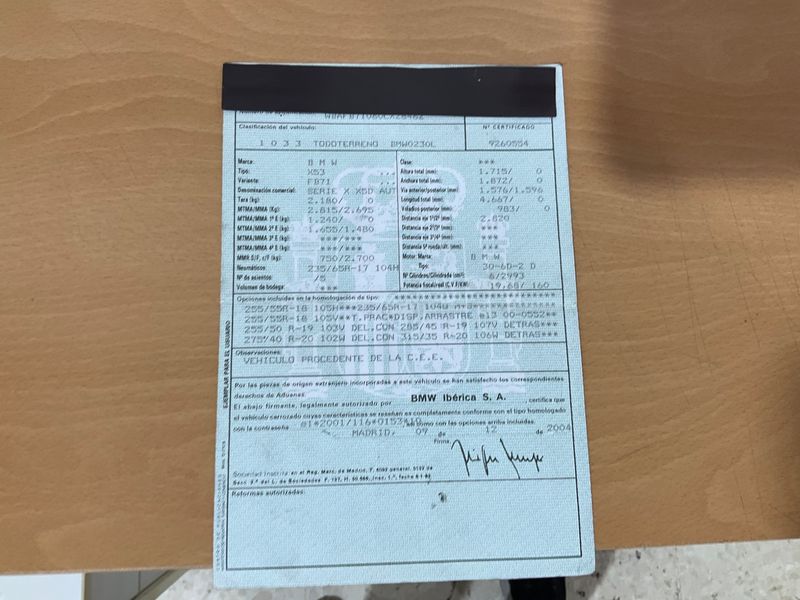 Clasificación del vehículo:
Nº CERTIFICADO
1 0 3 3 TODOTERRENO BMW0230L 9260554
Marca: B M W
Tipo: X53 ...
Variante: FB71 ...
Denominación comercial: SERIE X X5D AUT
Tara (kg) 2.180/ 0
MTMA/MMA (Kg) 2.815/2.695
MTMA/MMA 1º E (kg) 1.240/ 0
MTMA/MMA 2º E (kg) 1.655/1.480
MTMA/MMA 3º E (kg) ***/***
MTMA/MMA 4º E (kg) ***/***
MMR S/F, c/F (kg) 750/2.700
Neumáticos 235/65R-17 104H
Nº de asientos: /5
Volumen de bodega: ***
Clase: ***
Altura total (mm): 1.715/ 0
Anchura total (mm): 1.872/ 0
Vía anterior/posterior (mm): 1.576/1.596
Longitud total (mm): 4.667/ 0
Voladizo posterior (mm): 983/ 0
Distancia eje 1º/2º (mm): 2.820
Distancia eje 2º/3º (mm): ***
Distancia eje 3º/4º (mm): ***
Distancia 5ª rueda/últ. (mm): ***
Motor: Marca: B M W
Tipo: 30-6D-2 D
Nº Cilindros/Cilindrada (cm³) 6/2993
Potencia fiscal/real (C.V.F/KW) 19,68/ 160
Opciones incluidas en la homologación de tipo:
255/55R-18 105H***235/65R-17 104H
255/55R-18 105V**T.PRAC*DISP.ARRASTRE e13 00-0552**
255/50 R-19 103V DEL.CON 285/45 R-19 107V DETRAS***
275/40 R-20 102W DEL.CON 315/35 R-20 106W DETRAS***
Observaciones:
VEHICULO PROCEDENTE DE LA C.E.E.
Por las piezas de origen extranjero incorporadas a este vehículo se han satisfecho los correspondientes
derechos de Aduanas.
El abajo firmante, legalmente autorizado por BMW Ibérica S, A. , certifica que
el vehículo carrozado cuyas características se reseñan es completamente conforme con el tipo homologado
con la contraseña e1*2001/116*0153*10 , así como con las opciones arriba incluidas.
MADRID, 09 de 12 de 2004
Firma,
Sociedad Inscrita en el Reg. Merc. de Madrid, T.
Reformas autorizadas:
EJEMPLAR PARA EL USUARIO